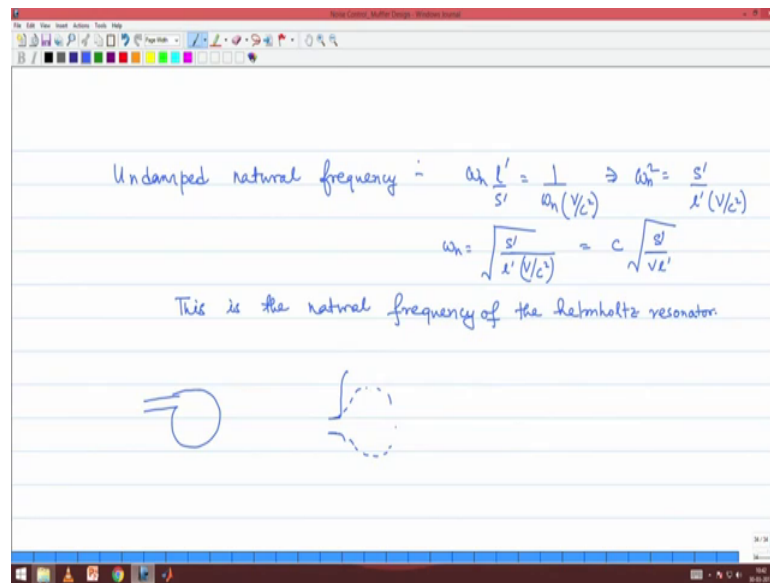 Noise Control_Muffler Design - Windows Journal
File Edit View Insert Actions Tools Help
Page Width
B I
Undamped natural frequency :- ωn l'/s' = 1/ωn(V/c²) ⇒ ωn² = s'/l'(V/c²)
ωn = √(s'/l'(V/c²)) = c √(s'/Vl')
This is the natural frequency of the helmholtz resonator.
34 / 34